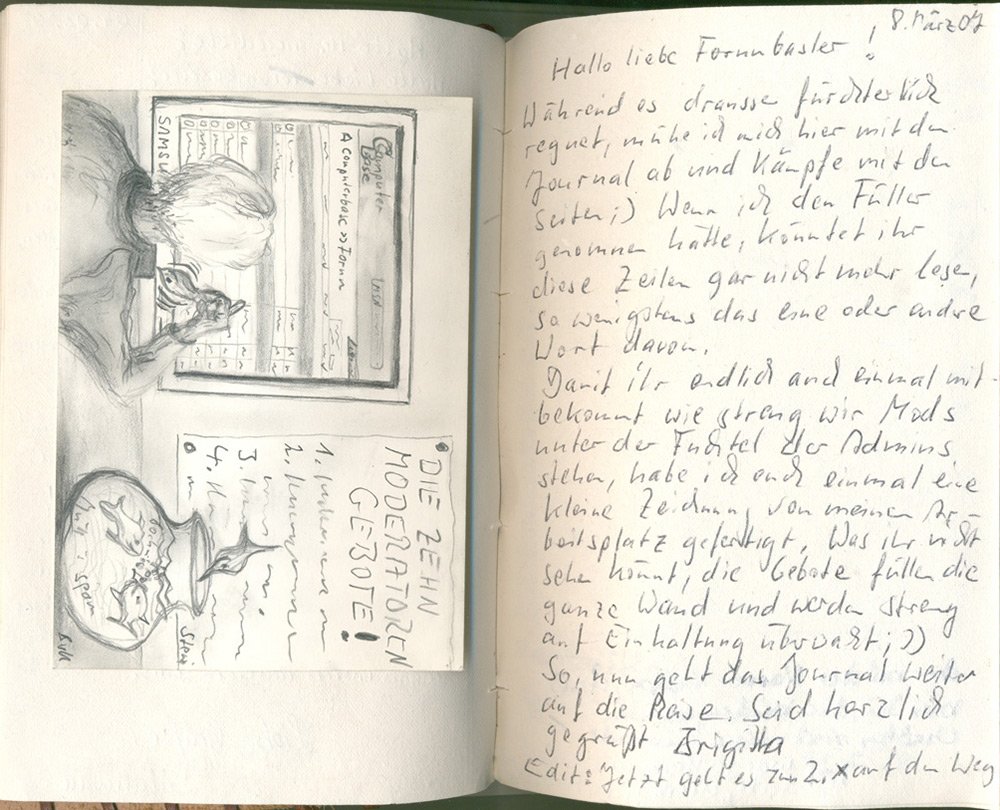 Computer
Base
A Computerbase >> Forum
SAMSU
DIE ZEHN
MODERATOREN
GEBOTE!
1.
2.
3.
4.
spam
8. März 07
Hallo liebe Forumbasler!
Während es draussen fürchterlich
regnet, mühe ich mich hier mit dem
Journal ab und kämpfe mit den
Seiten ;) Wenn ich den Füller
genommen hätte, könntet ihr
diese Zeilen gar nicht mehr lesen,
so wenigstens das eine oder andere
Wort davon.
Damit ihr endlich auch einmal mit-
bekommt wie streng wir Mods
unter der Fuchtel der Admins
stehen, habe ich euch einmal eine
kleine Zeichnung von meinem Ar-
beitsplatz gefertigt. Was ihr nicht
sehen könnt, die Gebote füllen die
ganze Wand und werden streng
auf Einhaltung überwacht ;))
So, nun geht das Journal weiter
auf die Reise. Seid herzlich
gegrüßt Brigitta
Edit: Jetzt geht es zum auf den Weg